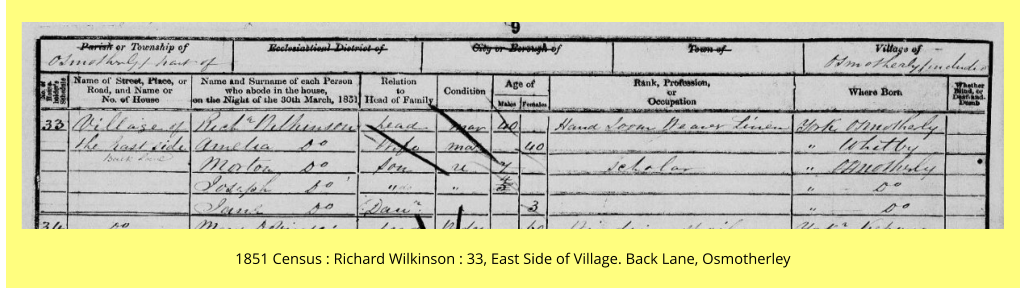 9
Parish or Township of Ecclesiastical District of City or Borough of Town of Village of
Osmotherly part of Osmotherly
Name of Street, Place, or Road, and Name or No. of House
Name and Surname of each Person who abode in the house, on the Night of the 30th March, 1851
Relation to Head of Family
Condition
Age of
Males Females
Rank, Profession, or Occupation
Where Born
Whether Blind, or Deaf-and-Dumb
33 Village of Richd Wilkinson head mar 40 Hand Loom Weaver Linen York Osmotherly
the East side Amelia Do Wife mar 40 " Whitby
Back Lane
Do Son 7 Scholar " Osmotherly
Joseph Do " " " Do
Jane Do Daur 3 " Do
34 Do
1851 Census : Richard Wilkinson : 33, East Side of Village. Back Lane, Osmotherley